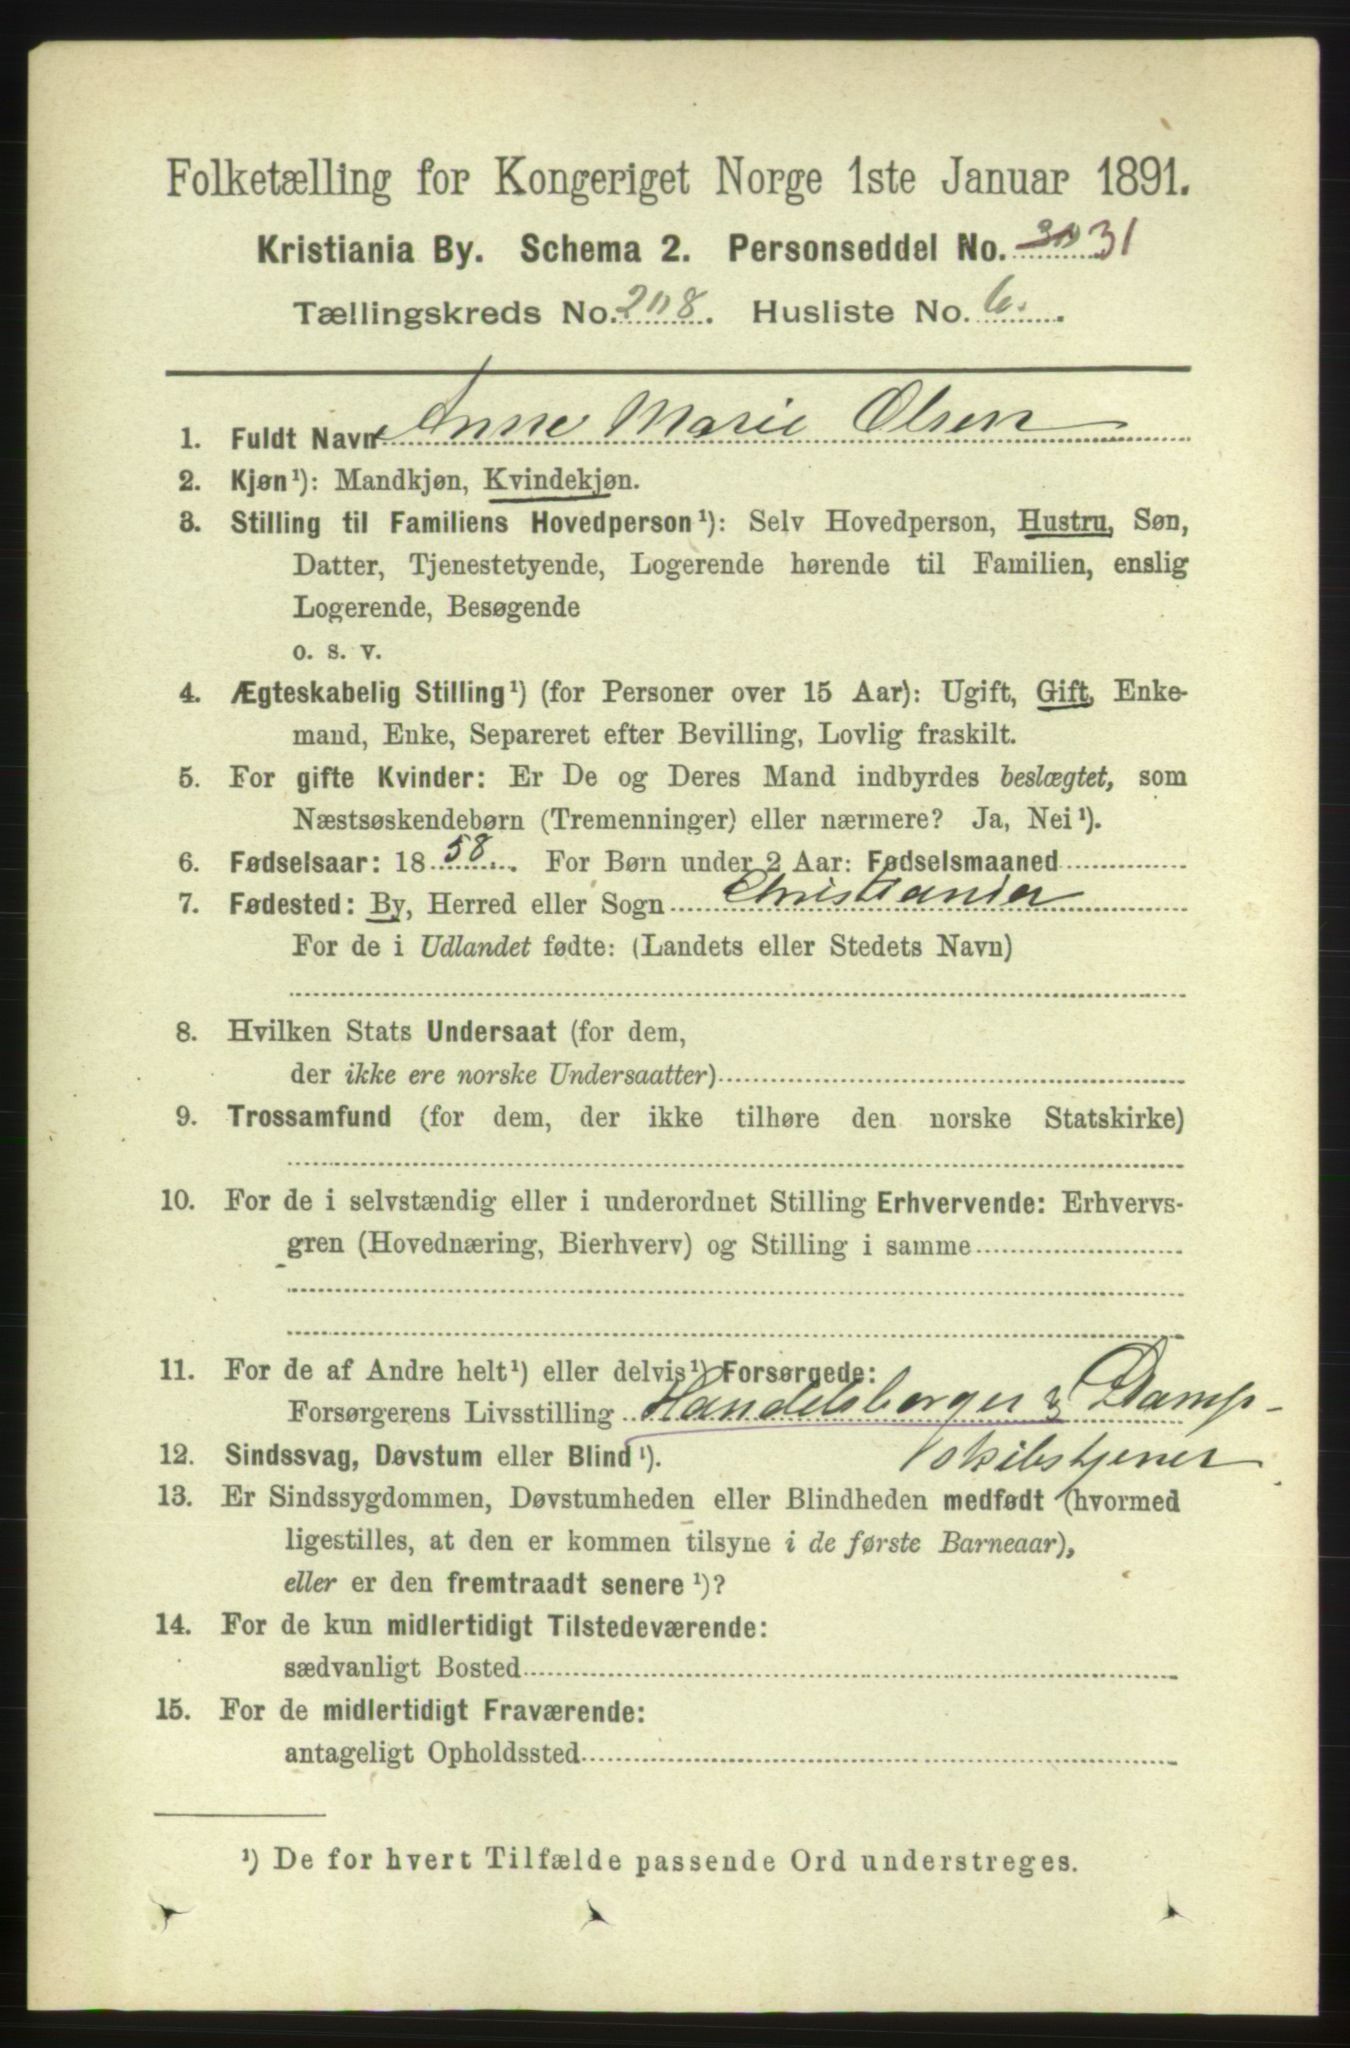 Folketælling for Kongeriget Norge 1ste Januar 1891.
Kristiania By. Schema 2. Personseddel No. 31
Tællingskreds No. 208. Husliste No. 6.
1. Fuldt Navn Anne Marie Olsen
2. Kjøn¹): Mandkjøn, Kvindekjøn.
3. Stilling til Familiens Hovedperson¹): Selv Hovedperson, Hustru, Søn,
Datter, Tjenestetyende, Logerende hørende til Familien, enslig
Logerende, Besøgende
o. s. v.
4. Ægteskabelig Stilling¹) (for Personer over 15 Aar): Ugift, Gift, Enke-
mand, Enke, Separeret efter Bevilling, Lovlig fraskilt.
5. For gifte Kvinder: Er De og Deres Mand indbyrdes beslægtet, som
Næstsøskendebørn (Tremenninger) eller nærmere? Ja, Nei¹).
6. Fødselsaar: 1858. For Børn under 2 Aar: Fødselsmaaned
7. Fødested: By, Herred eller Sogn Christiania
For de i Udlandet fødte: (Landets eller Stedets Navn)
8. Hvilken Stats Undersaat (for dem,
der ikke ere norske Undersaatter)
9. Trossamfund (for dem, der ikke tilhøre den norske Statskirke)
10. For de i selvstændig eller i underordnet Stilling Erhvervende: Erhvervs-
gren (Hovednæring, Bierhverv) og Stilling i samme
11. For de af Andre helt¹) eller delvis¹) Forsørgede:
Forsørgerens Livsstilling Handelsborger & Damp-
12. Sindssvag, Døvstum eller Blind¹). skibstjener
13. Er Sindssygdommen, Døvstumheden eller Blindheden medfødt (hvormed
ligestilles, at den er kommen tilsyne i de første Barneaar),
eller er den fremtraadt senere¹)?
14. For de kun midlertidigt Tilstedeværende:
sædvanligt Bosted
15. For de midlertidigt Fraværende:
antageligt Opholdssted
¹) De for hvert Tilfælde passende Ord understreges.